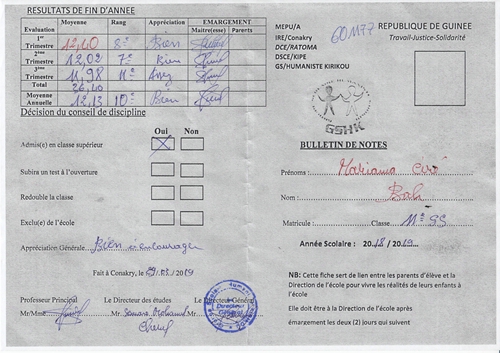 RESULTATS DE FIN D'ANNEE
Evaluation Moyenne Rang Appréciation EMARGEMENT
Maitre(esse) Parents
1er Trimestre 12,60 8e Bien
2ème Trimestre 12,02 7e Bien
3ème Trimestre 11,98 11e Assez
Total 36,40
Moyenne Annuelle 12,13 10e Bien
Décision du conseil de discipline
Oui Non
Admis(e) en classe supérieur X
Subira un test à l'ouverture
Redouble la classe
Exclu(e) de l'école
Appréciation Générale Bien à encourager
Fait à Conakry, le 29/08/2019
Professeur Principal Le Directeur des études Le Directeur Général
Mr/Mme Mr
MEPU/A
IRE/Conakry
DCE/RATOMA
DSCE/KIPE
GS/HUMANISTE KIRIKOU
REPUBLIQUE DE GUINEE
Travail-Justice-Solidarité
GSHK
BULLETIN DE NOTES
Prénoms : Mariama Ciré
Nom : Bah
Matricule : Classe 11e SS
Année Scolaire : 2018 / 2019
NB: Cette fiche sert de lien entre les parents d'élève et la
Direction de l'école pour vivre les réalités de leurs enfants à
l'école
Elle doit être à la Direction de l'école après
émargement les deux (2) jours qui suivent